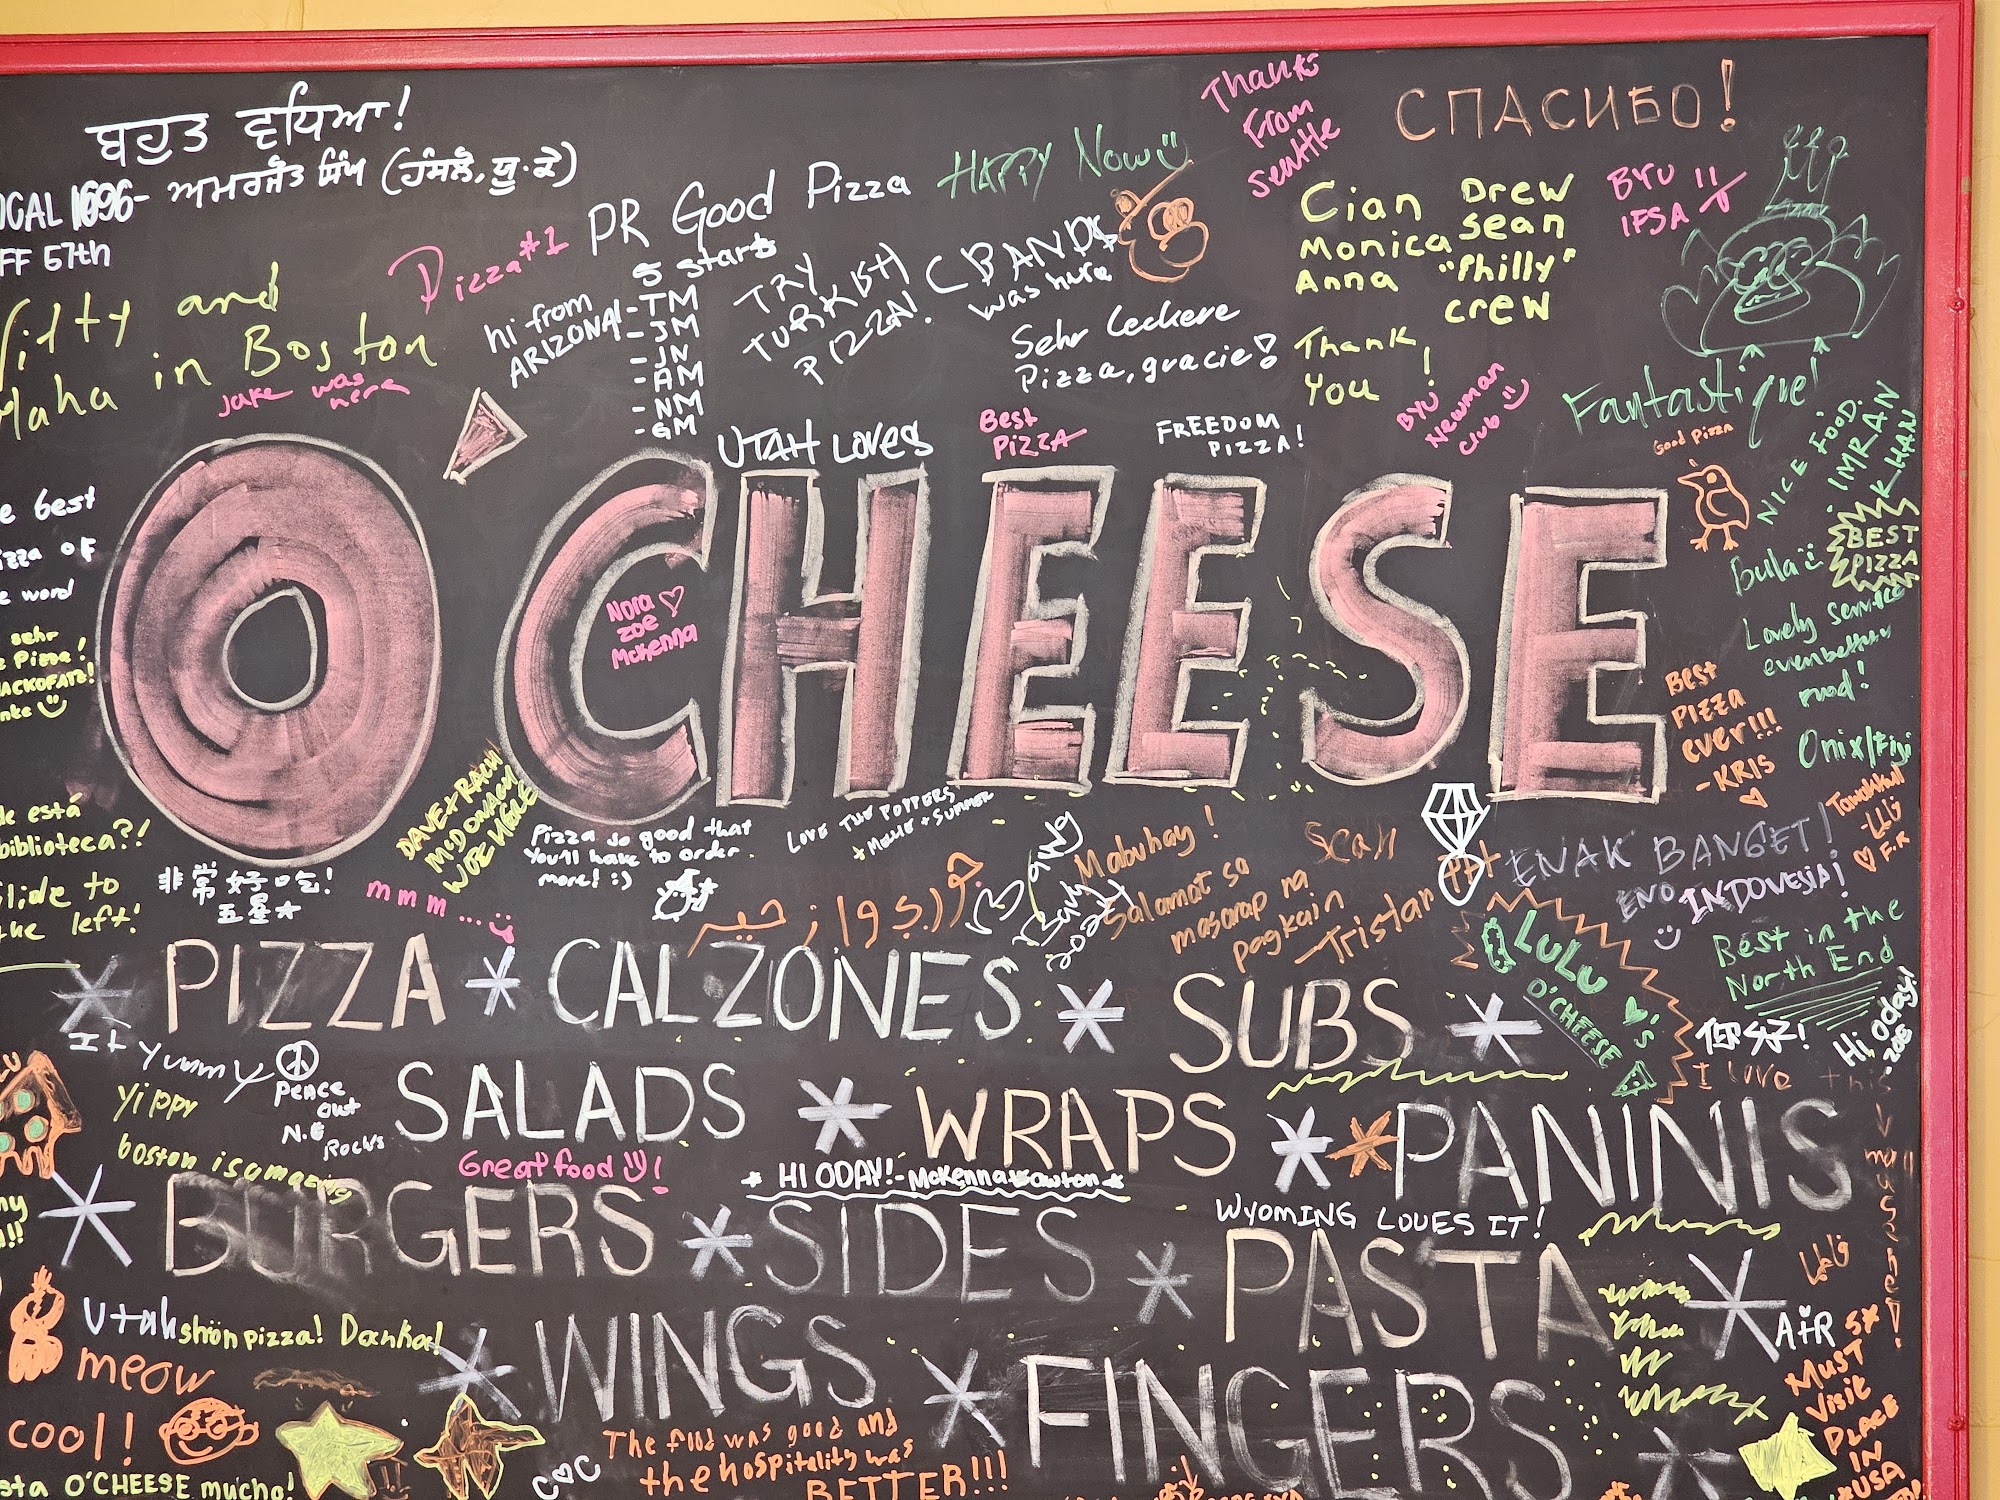 ਬਹੁਤ ਵਧਿਆ!
1696- ਅਮਰਜੋਤ ਸਿੰਘ (ਹੰਸਲੋ, ਯੂ.ਕੇ)
57th
and
in Boston
Jake was
here
Pizza #1
PR Good Pizza
5 starts
-TM
-JM
-JN
-AM
-NM
-GM
hi from
ARIZONA!
HAPPY Now
TRY
TURKISH
PIZZA!
C BANDS
was here
Sehr Leckere
Pizza, gracie!
Thanks
From
Seattle
СПАСИБО!
Cian
Monica
Anna
Drew
Sean
"Philly"
crew
Thank
You!
BYU
IFSA
BYU
Newman
Club
Fantastique!
Good Pizza
NICE FOOD.
IMRAN
KHAN
BEST
PIZZA
UTAH Loves
Best
PIZZA
FREEDOM
PIZZA!
O CHEESE
Nora
zoe
McKenna
best
OF
word
sehr
Pizza!
Bula
Lovely service
even better
food!
Best
PIZZA
ever!!!
-KRIS
Onix/Fiji
está
biblioteca?!
to
the left!
非常好吃!
五星★
mmm...
DAVE + RACH
McDONAGH
WERE HERE
Pizza so good that
You'll have to order
more! :)
LOVE THE POPPERS
+ MOLLIE + SUMMER
Mabuhay!
Salamat sa
masarap na
pagkain
-Tristan
Sean
ENAK BANGET!
ENO INDONESIA!
LULU
♥'s
O'CHEESE
Best in the
North End
很好!
Hi Oday!
-Zoe
I love this
PIZZA * CALZONES * SUBS *
Yummy
Peace
out
N.E
Rocks
yippy
boston is amazing
SALADS * WRAPS * PANINIS
Great food!
HI ODAY!-McKenna Lawton
* BURGERS * SIDES * PASTA *
WYOMING LOVES IT!
Utah
shön pizza! Danka!
meow
* WINGS * FINGERS
A+R
5*
MUST
Visit
PLACE
IN
USA
cool!
O'CHEESE mucho!
The food was good and
the hospitality was
BETTER!!!